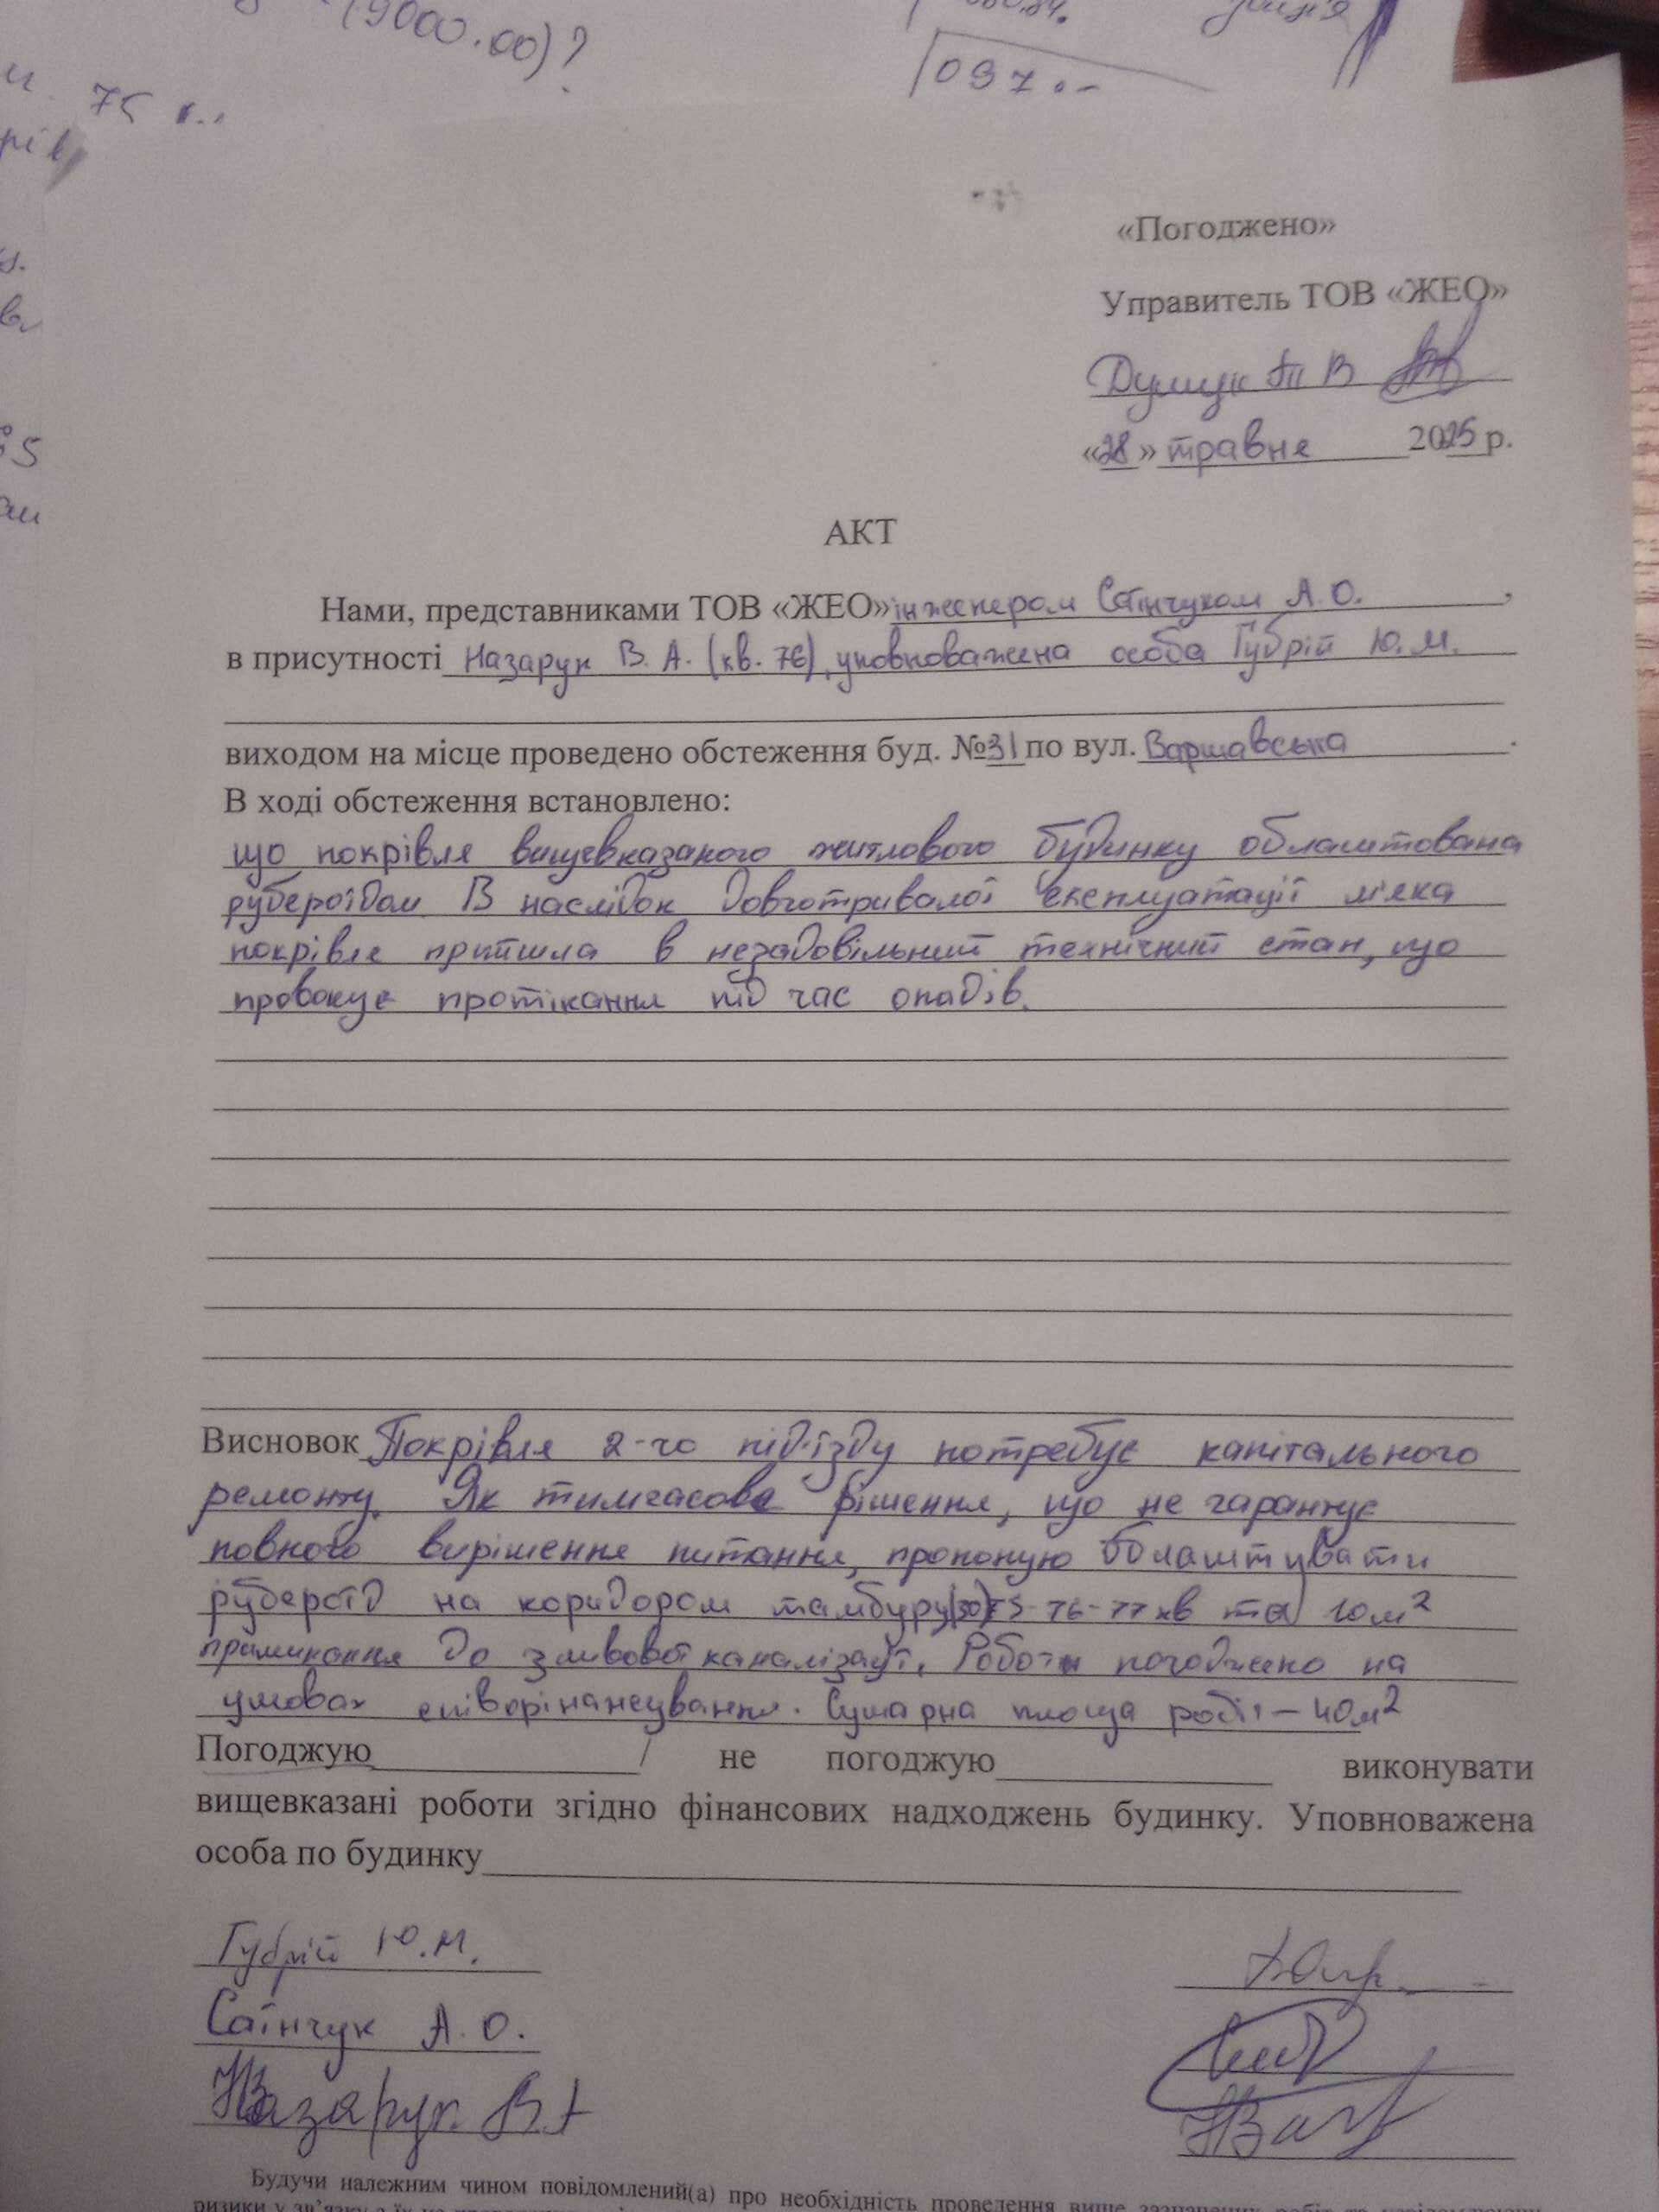 (9000.00)?
097.-
75 к..
«Погоджено»
Управитель ТОВ «ЖЕО»
«28» травня 2025 р.
АКТ
Нами, представниками ТОВ «ЖЕО» інженером Саїнчуком А.О. ,
в присутності Назарук В. А. (кв. 76), уповноважена особа Губрій Ю.М.
виходом на місце проведено обстеження буд. №31 по вул. Варшавська .
В ході обстеження встановлено:
що покрівля вищевказаного житлового будинку облаштована
рубероїдом. В наслідок довготривалої експлуатації м'яка
покрівля прийшла в незадовільний технічний стан, що
провокує протікання під час опадів.
Висновок Покрівля 2-го під'їзду потребує капітального
ремонту. Як тимчасове рішення, що не гарантує
повного вирішення питання, пропоную облаштувати
рубероїд на коридором тамбуру (30) 75-76-77 кв та 10м²
примикання до зливової каналізації. Роботи погоджено на
умовах співфінансування. Сумарна площа робіт – 40м²
Погоджую / не погоджую виконувати
вищевказані роботи згідно фінансових надходжень будинку. Уповноважена
особа по будинку
Губрій Ю.М.
Саїнчук А.О.
Назарук В.А
Будучи належним чином повідомлений(а) про необхідність проведення вище зазначених робіт та